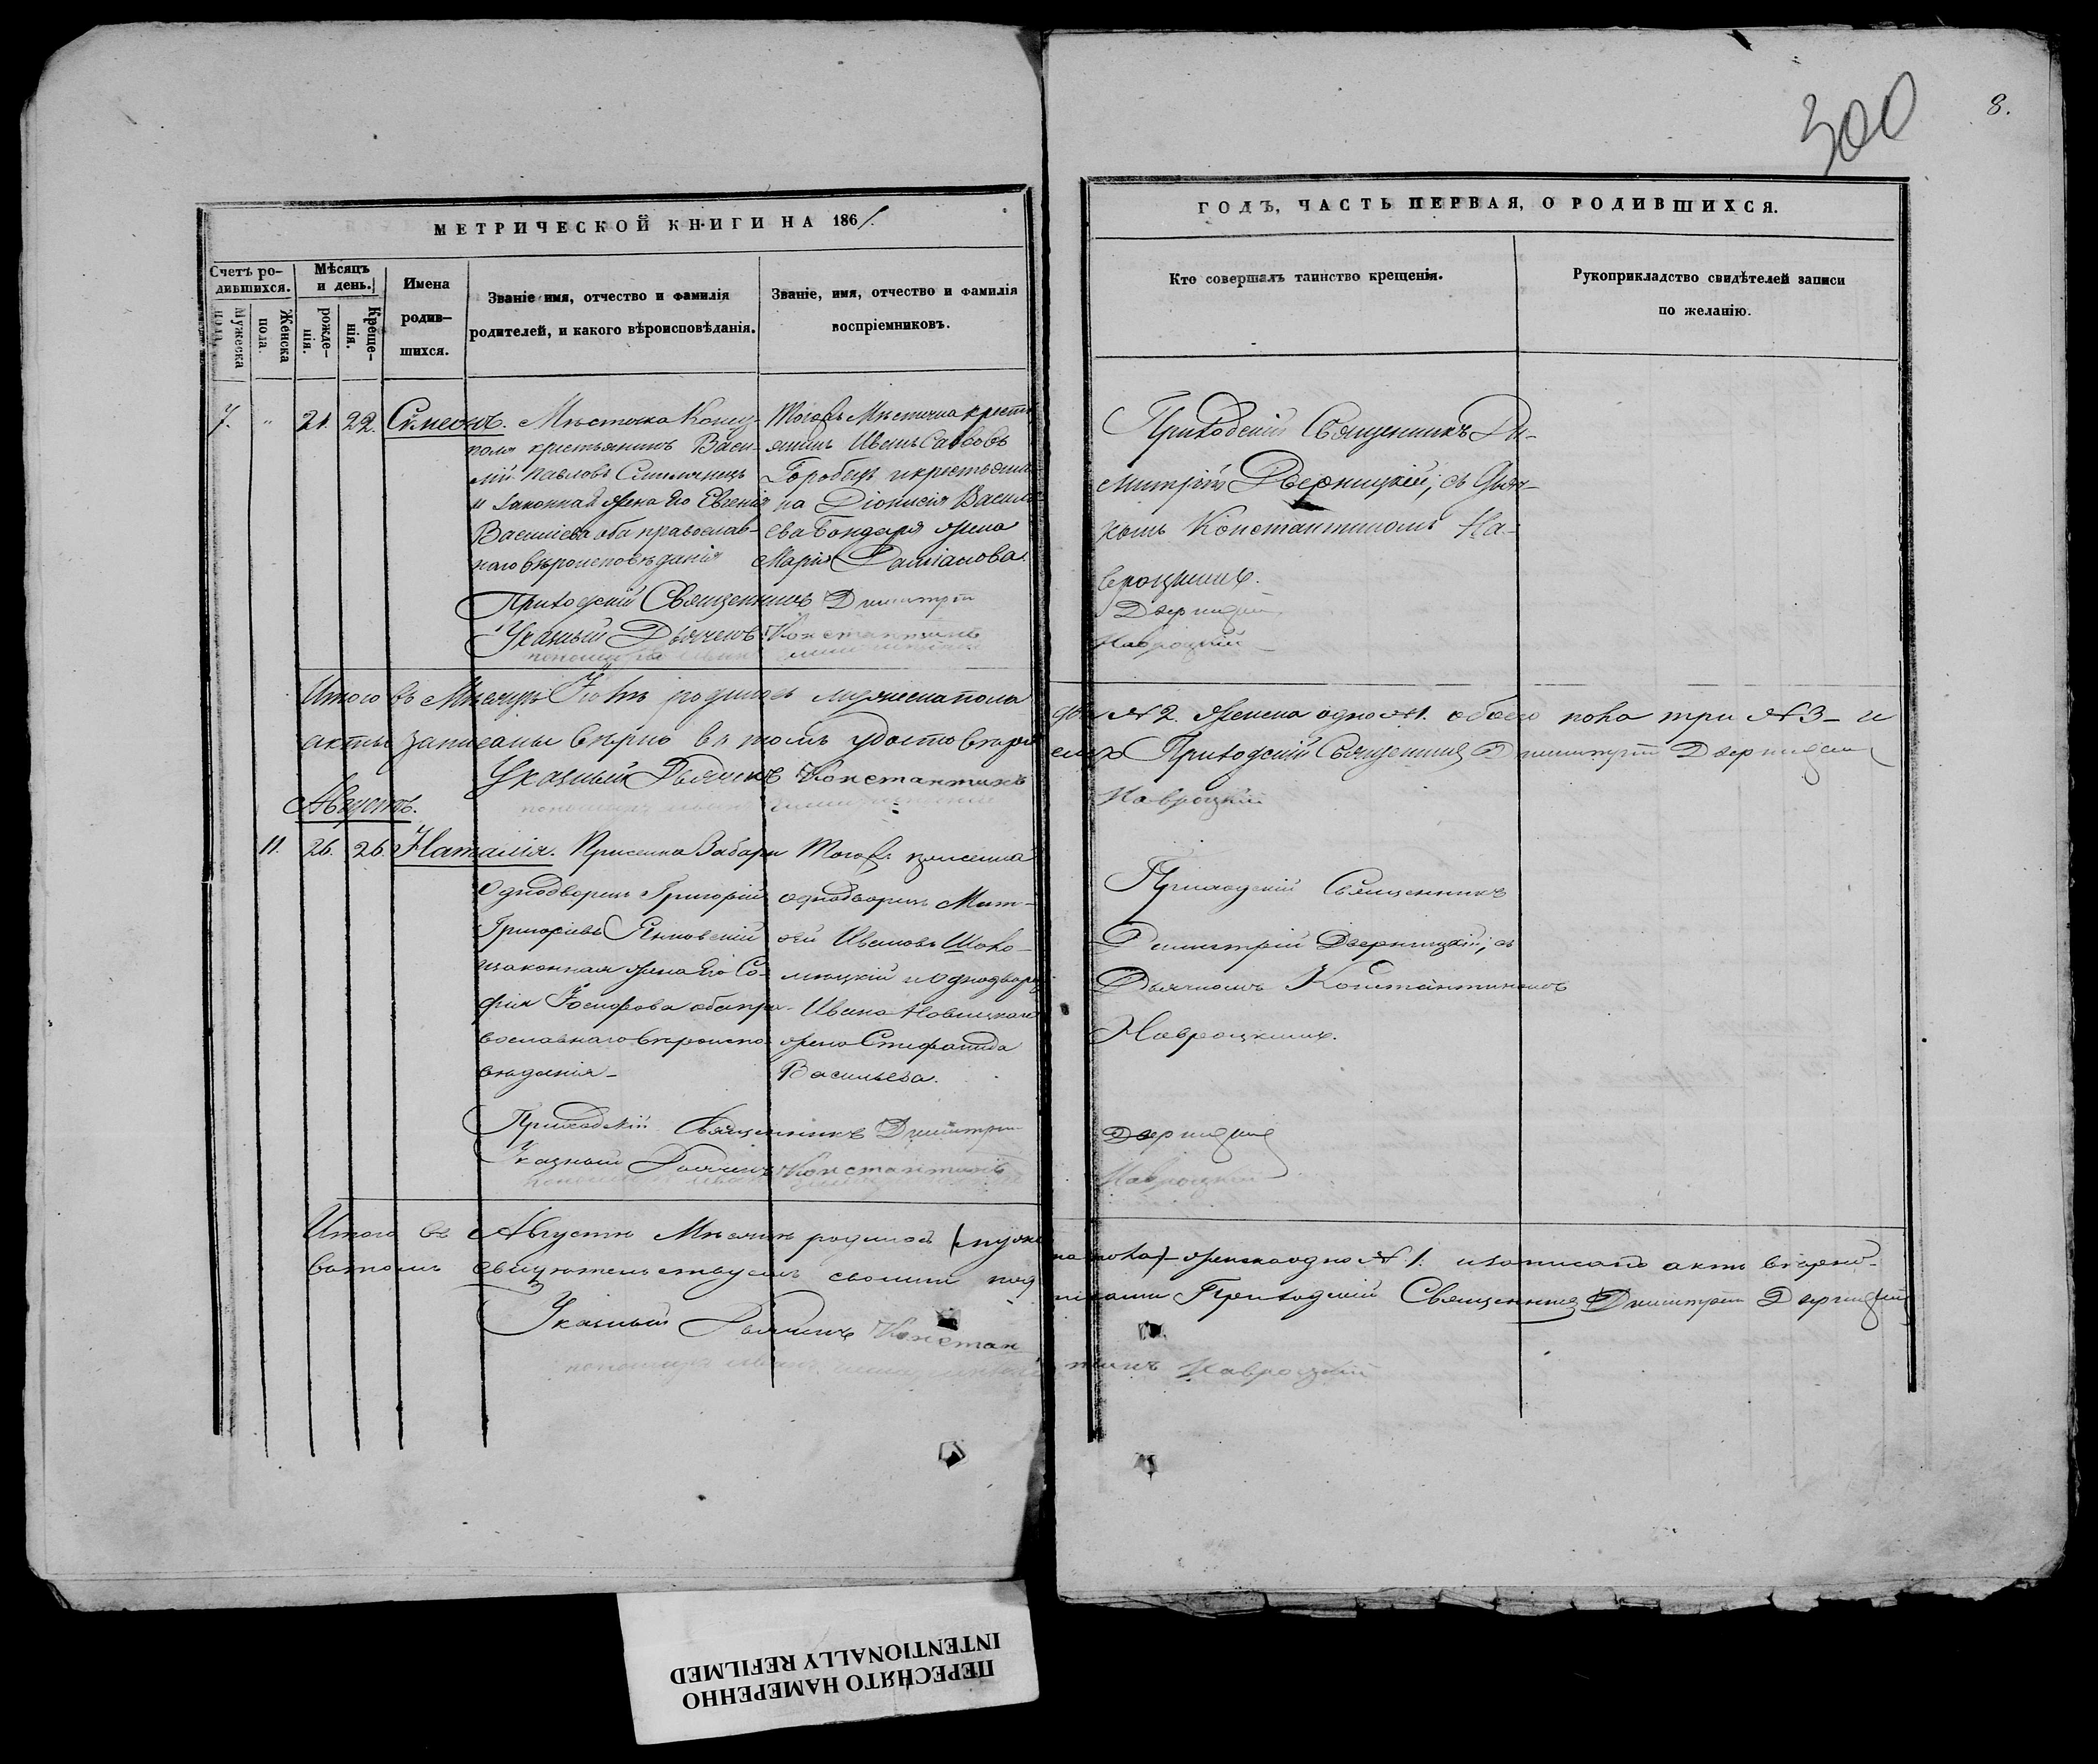 300
8.
МЕТРИЧЕСКОЙ КНИГИ НА 1861.
ГОДЪ, ЧАСТЬ ПЕРВАЯ, О РОДИВШИХСЯ.
Счетъ ро-
дившихся.
Мужеска
пола.
Женска
пола.
Мѣсяцъ
и день.
рожде-
нія.
Креще-
нія.
Имена
родив-
шихся.
Званіе имя, отчество и фамилія
родителей, и какого вѣроисповѣданія.
Званіе, имя, отчество и фамилія
воспріемниковъ.
Кто совершалъ таинство крещенія.
Рукоприкладство свидѣтелей записи
по желанію.
7. " 21. 22. Сѵмеонъ.
Мѣстечка
поля крестьянинъ Васи-
лій Павловъ
и законная жена Его Евгенія
Васильева оба православ-
наго вѣроисповѣданія
Тогожъ Мѣстечка кресть
янинъ Иванъ Саввовъ
Горобецъ и крестьяни-
на Діонисія Василь
ева Бондаря жена
Марія Даміанова.
Приходскій Священникъ Ди-
митрій Дверницкій, съ Дьяч-
комъ Константиномъ На-
вроцкимъ.
Приходскій Священникъ Димитрій Дверницкій
Указный Дьячекъ Константинъ Навроцкій
Итого въ Мѣсяцѣ Іюлѣ родилось мужеска пола два №2. женска одно №1. обоего пола три №3 и
акты записаны вѣрно въ томъ удостовѣряемъ Приходскій Священникъ Димитрій Дверницкій
Указный Дьячекъ Константинъ Навроцкій
Августъ.
11. 26. 26. Наталія.
Присѣлка Забары
Однодворецъ Григорій
Григорьевъ Яновскій
и законная жена Его Со-
фія Іосифова оба пра-
вославнаго вѣроиспо-
вѣданія
Тогожъ присѣлка
однодворецъ Мат-
ѳей Ивановъ Шоко-
и Однодворц
Ивана Новицкаго
жена Стефанида
Васильева.
Приходскій Священникъ
Димитрій Дверницкій, съ
Дьячкомъ Константиномъ
Навроцкимъ.
Приходскій Священникъ Димитрій Дверницкій
Указный Дьячекъ Константинъ Навроцкій
Итого въ Августѣ Мѣсяцѣ родилось (мужеска пола) женска одно №1. и записано актъ вѣрно
въ томъ свидѣтельствуемъ своими подписами Приходскій Священникъ Димитрій Дверницкій
Указный Дьячекъ Константинъ Навроцкій
ПЕРЕСНЯТО НАМЕРЕННО
INTENTIONALLY REFILMED